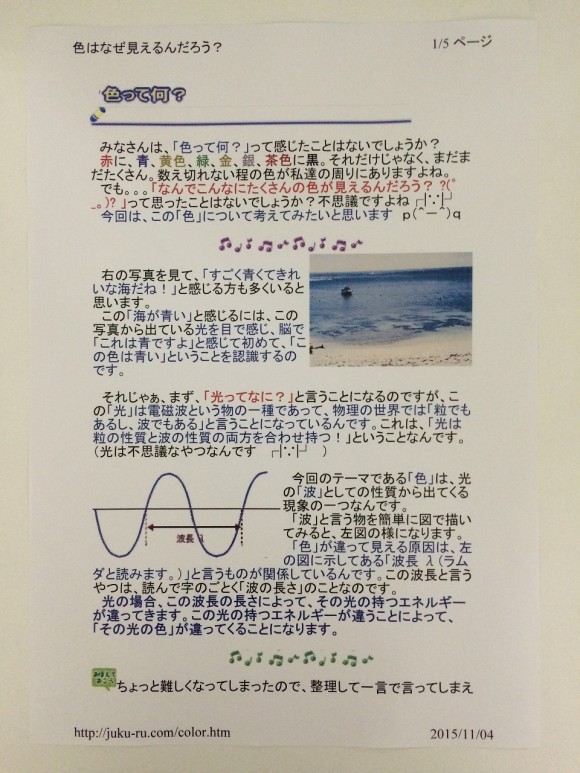 色はなぜ見えるんだろう？
1/5 ページ
色って何？
みなさんは、「色って何？」って感じたことはないでしょうか？
赤に、青、黄色、緑、金、銀、茶色に黒。それだけじゃなく、まだま
だたくさん。数え切れない程の色が私達の周りにありますよね。
でも。。。「なんでこんなにたくさんの色が見えるんだろう？ ?(ﾟ
_。)?」って思ったことはないでしょうか？不思議ですよね┌|∵|┘
今回は、この「色」について考えてみたいと思います p(＾－＾)q
右の写真を見て、「すごく青くてきれ
いな海だね！」と感じる方も多くいると
思います。
この「海が青い」と感じるには、この
写真から出ている光を目で感じ、脳で
「これは青ですよ」と感じて初めて、「こ
の色は青い」ということを認識するの
です。
それじゃぁ、まず、「光ってなに？」と言うことになるのですが、こ
の「光」は電磁波という物の一種であって、物理の世界では「粒でも
あるし、波でもある」と言うことになっているんです。これは、「光は
粒の性質と波の性質の両方を合わせ持つ！」ということなんです。
（光は不思議なやつなんです ┌|∵|┘ ）
波長 λ
今回のテーマである「色」は、光
の「波」としての性質から出てくる
現象の一つなんです。
「波」と言う物を簡単に図で描い
てみると、左図の様になります。
「色」が違って見える原因は、左
の図に示してある「波長 λ（ラム
ダと読みます。）」と言うものが関係しているんです。この波長と言う
やつは、読んで字のごとく「波の長さ」のことなのです。
光の場合、この波長の長さによって、その光の持つエネルギー
が違ってきます。この光の持つエネルギーが違うことによって、
「その光の色」が違ってくることになります。
ちょっと難しくなってしまったので、整理して一言で言ってしまえ
http://juku-ru.com/color.htm
2015/11/04